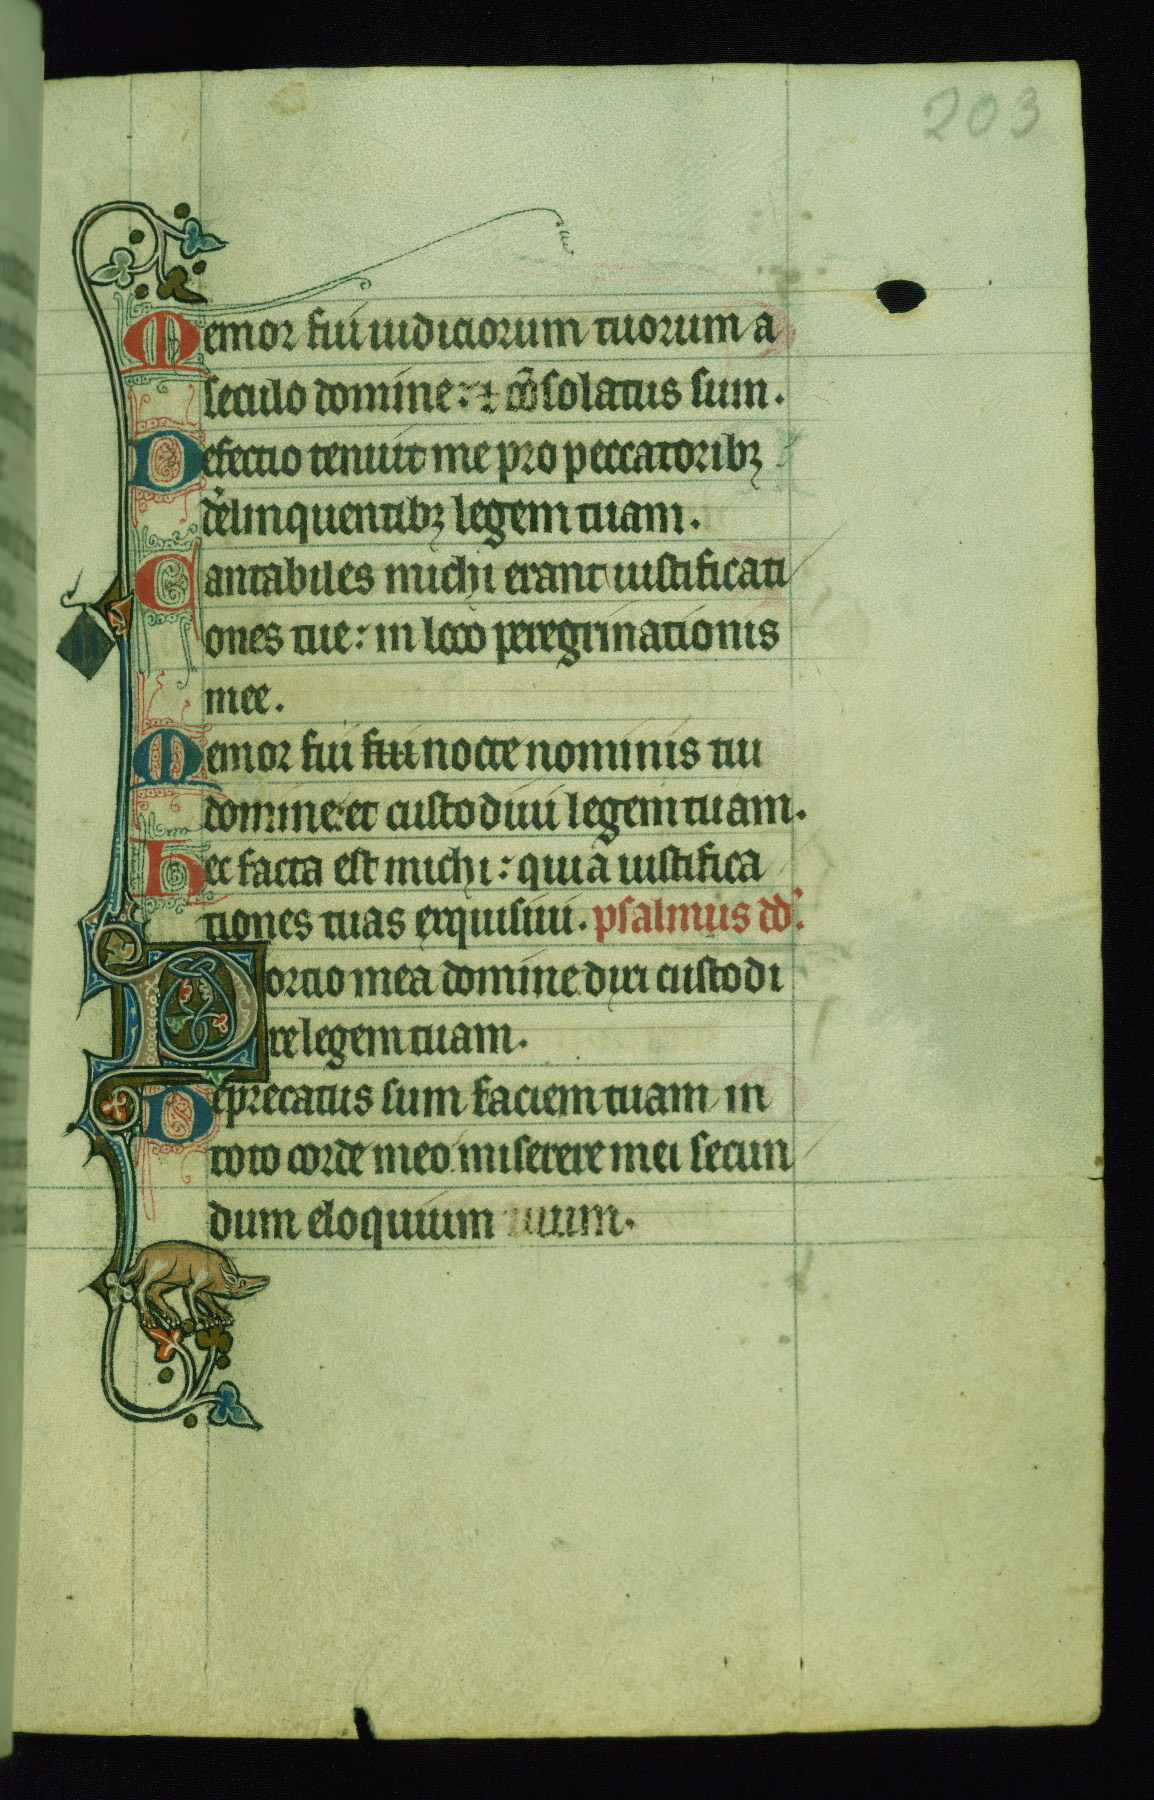 203
Memor fui iudiciorum tuorum a
seculo domine: ⁊ cōsolatus sum.
Defectio tenuit me pro peccatoribꝫ
delinquentibꝫ legem tuam.
Cantabiles michi erant iustificati
ones tue: in loco peregrinationis
mee.
Memor fui nocte nominis tui
domine: et custodiui legem tuam.
Hec facta est michi: quia iustifica
tiones tuas exquisiui. psalmus dd'.
Portio mea domine dixi custodi
re legem tuam.
Deprecatus sum faciem tuam in
toto corde meo miserere mei secun
dum eloquium tuum.